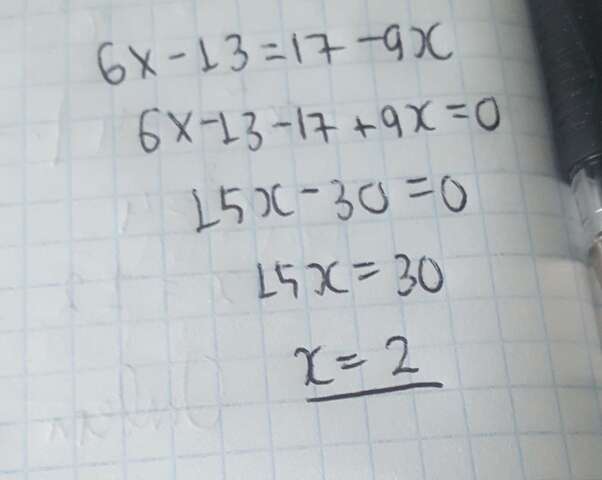 6x-13=17-9x
6x-13-17+9x=0
15x-30=0
15x=30
x=2